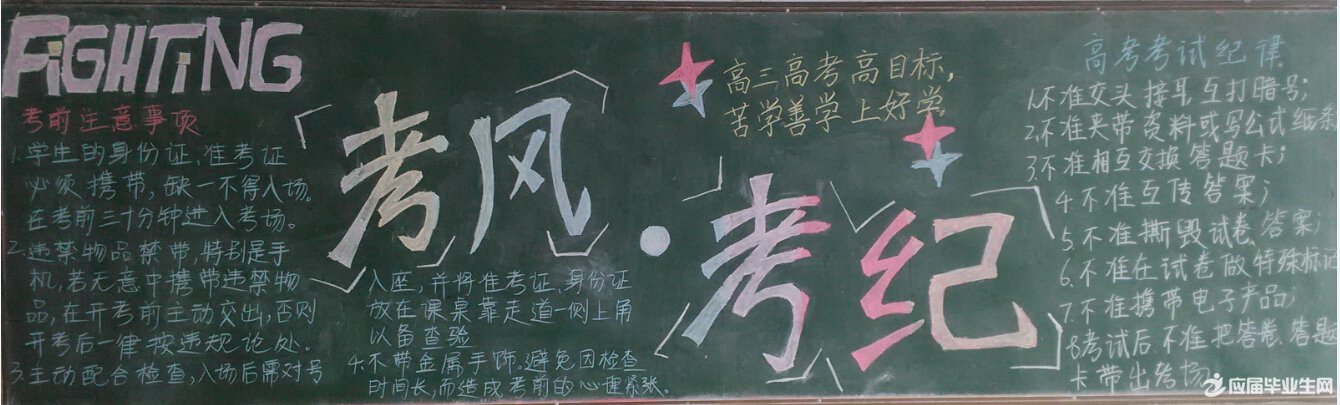 FiGHTiNG
考前注意事项
1.学生的身份证、准考证
必须携带,缺一不得入场。
在考前三十分钟进入考场。
2.违禁物品禁带,特别是手
机,若无意中携带违禁物
品,在开考前主动交出,否则
开考后一律按违规论处。
3.主动配合检查,入场后需对号
考风·考纪
入座,并将准考证、身份证
放在课桌靠走道一侧上角
以备查验
4.不带金属手饰、避免因检查
时间长,而造成考前的心理紧张。
高三高考高目标,
苦学善学上好学
高考考试纪律
1.不准交头接耳,互打暗号;
2.不准夹带资料或写公式纸条
3.不准相互交换答题卡;
4.不准互传答案;
5.不准撕毁试卷、答案;
6.不准在试卷做特殊标记
7.不准携带电子产品;
8考试后不准把答卷、答题
卡带出考场
应届毕业生网